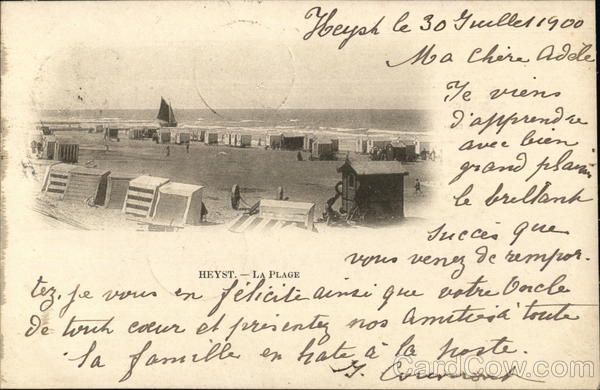 Heyst le 30 Juillet 1900
Ma chère Adèle
Je viens
d'apprendre
avec bien
grand plaisir
le brillant
succès que
vous venez de rempor-
HEYST. - LA PLAGE
tez. Je vous en félicite ainsi que votre Oncle
de tout coeur et présentez nos amitiés à toute
la famille en hate à la poste.
CardCow.com